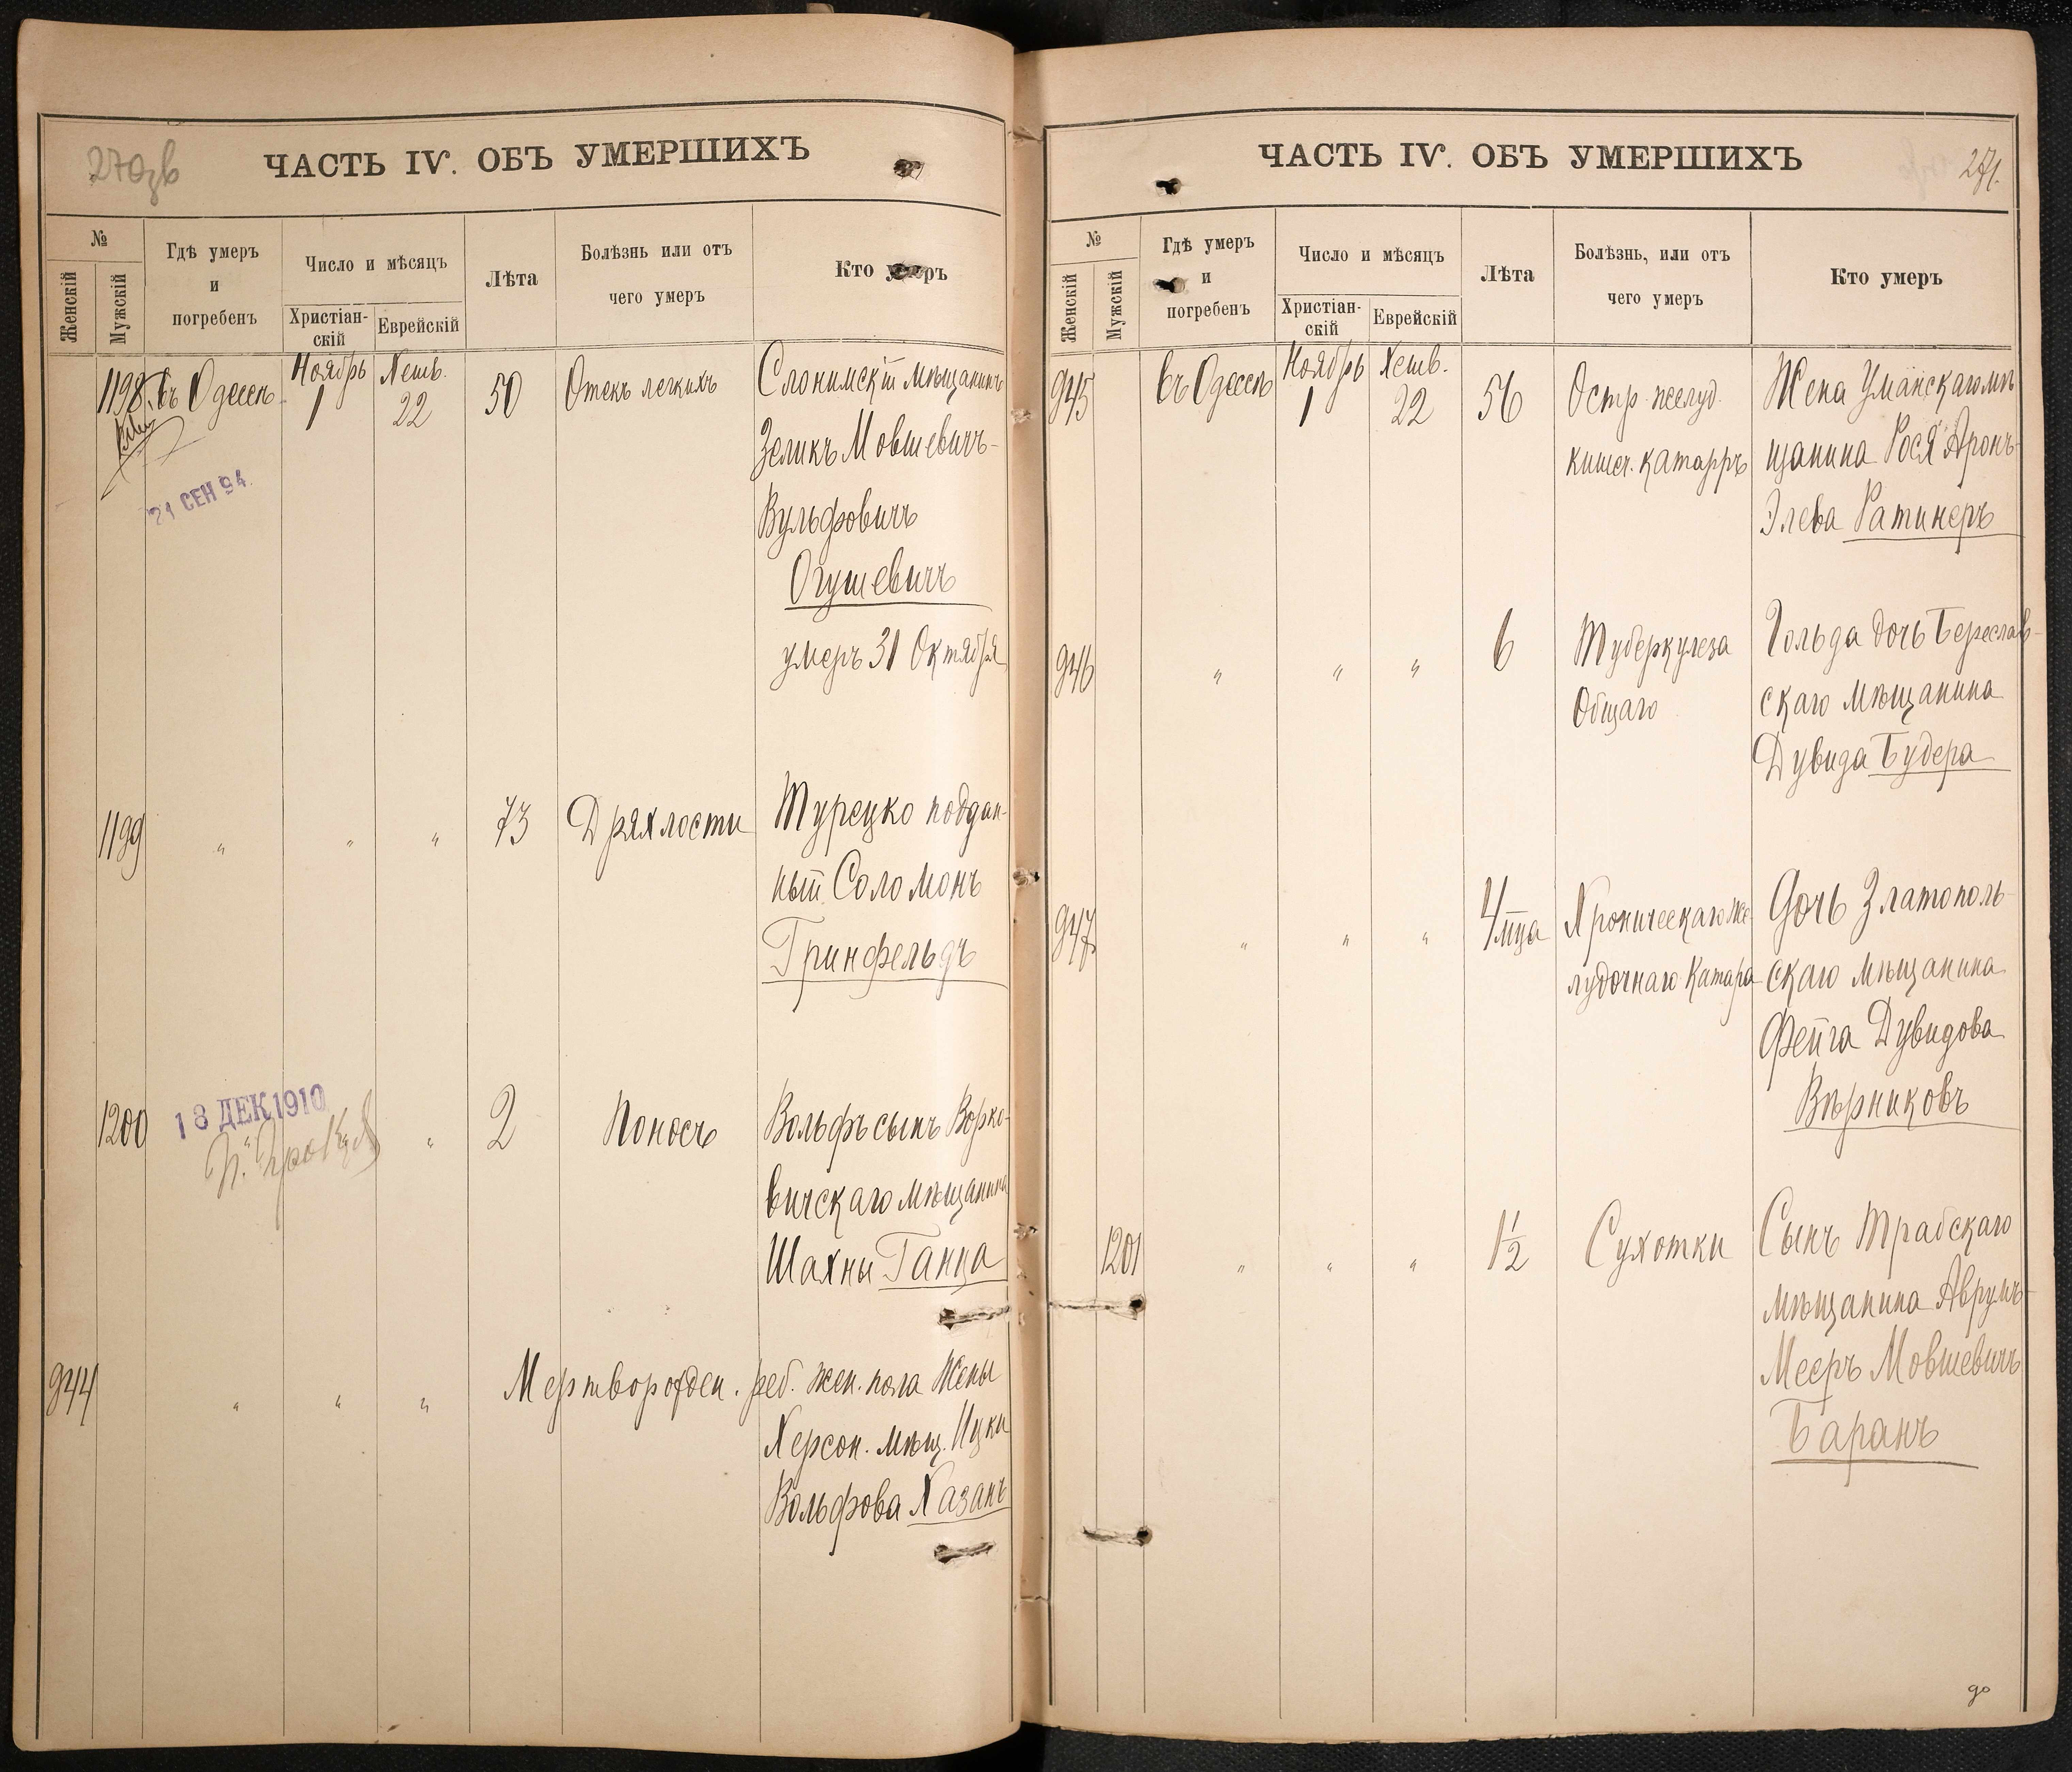 270зв
ЧАСТЬ IV. ОБЪ УМЕРШИХЪ
№
Женскій
Мужскій
Гдѣ умеръ
и
погребенъ
Число и мѣсяцъ
Христіан-
скій
Еврейскій
Лѣта
Болѣзнь или отъ
чего умеръ
Кто умеръ
1198. въ Одессѣ Ноябрь 1 Хешв. 22 50 Отекъ легкихъ Слонимскій мѣщанинъ
Зеликъ Мовшевичъ-
Вульфовичъ
Огушевичъ
умеръ 31 Октября
21 СЕН 94.
1199 " " " 73 Дряхлости Турецко поддан-
ный Соломонъ
Гринфельдъ
1200 " " 2 Поносъ Вольфъ сынъ Ворко-
вичскаго мѣщанина
Шахны Ганца
18 ДЕК 1910
944 " " " Мертворожден. реб. жен. пола Жены
Херсон. мѣщ. Ицки
Вольфова Хазанъ
271.
ЧАСТЬ IV. ОБЪ УМЕРШИХЪ
№
Женскій
Мужскій
Гдѣ умеръ
и
погребенъ
Число и мѣсяцъ
Христіан-
скій
Еврейскій
Лѣта
Болѣзнь, или отъ
чего умеръ
Кто умеръ
945 въ Одессѣ Ноябрь 1 Хешв. 22 56 Остр. желуд. Жена Уманскаго мѣ
кишеч. катарръ щанина Рося Аронъ-
Элева Ратинеръ
946 " " " 6 Туберкулеза Гольда дочь Береслав-
Общаго скаго мѣщанина
Дувида Будера
947 " " " 4 мца Хроническаго же- Дочь Златополь-
лудочнаго Катара скаго мѣщанина
Фейга Дувидова
Вѣрниковъ
1201 " " " 1 1/2 Сухотки Сынъ Трабскаго
мѣщанина Аврумъ-
Мееръ Мовшевичъ
Баранъ